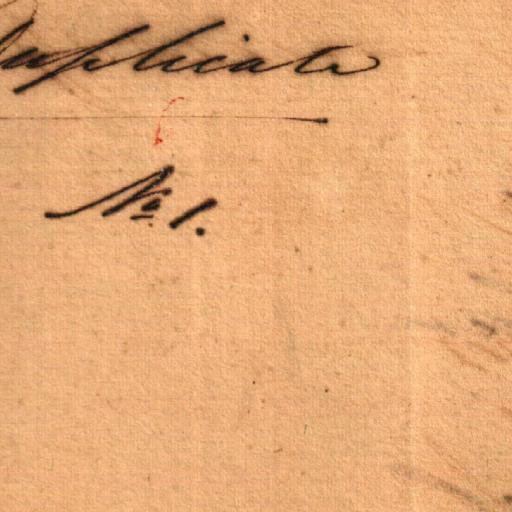 Duplicate
No. 1.